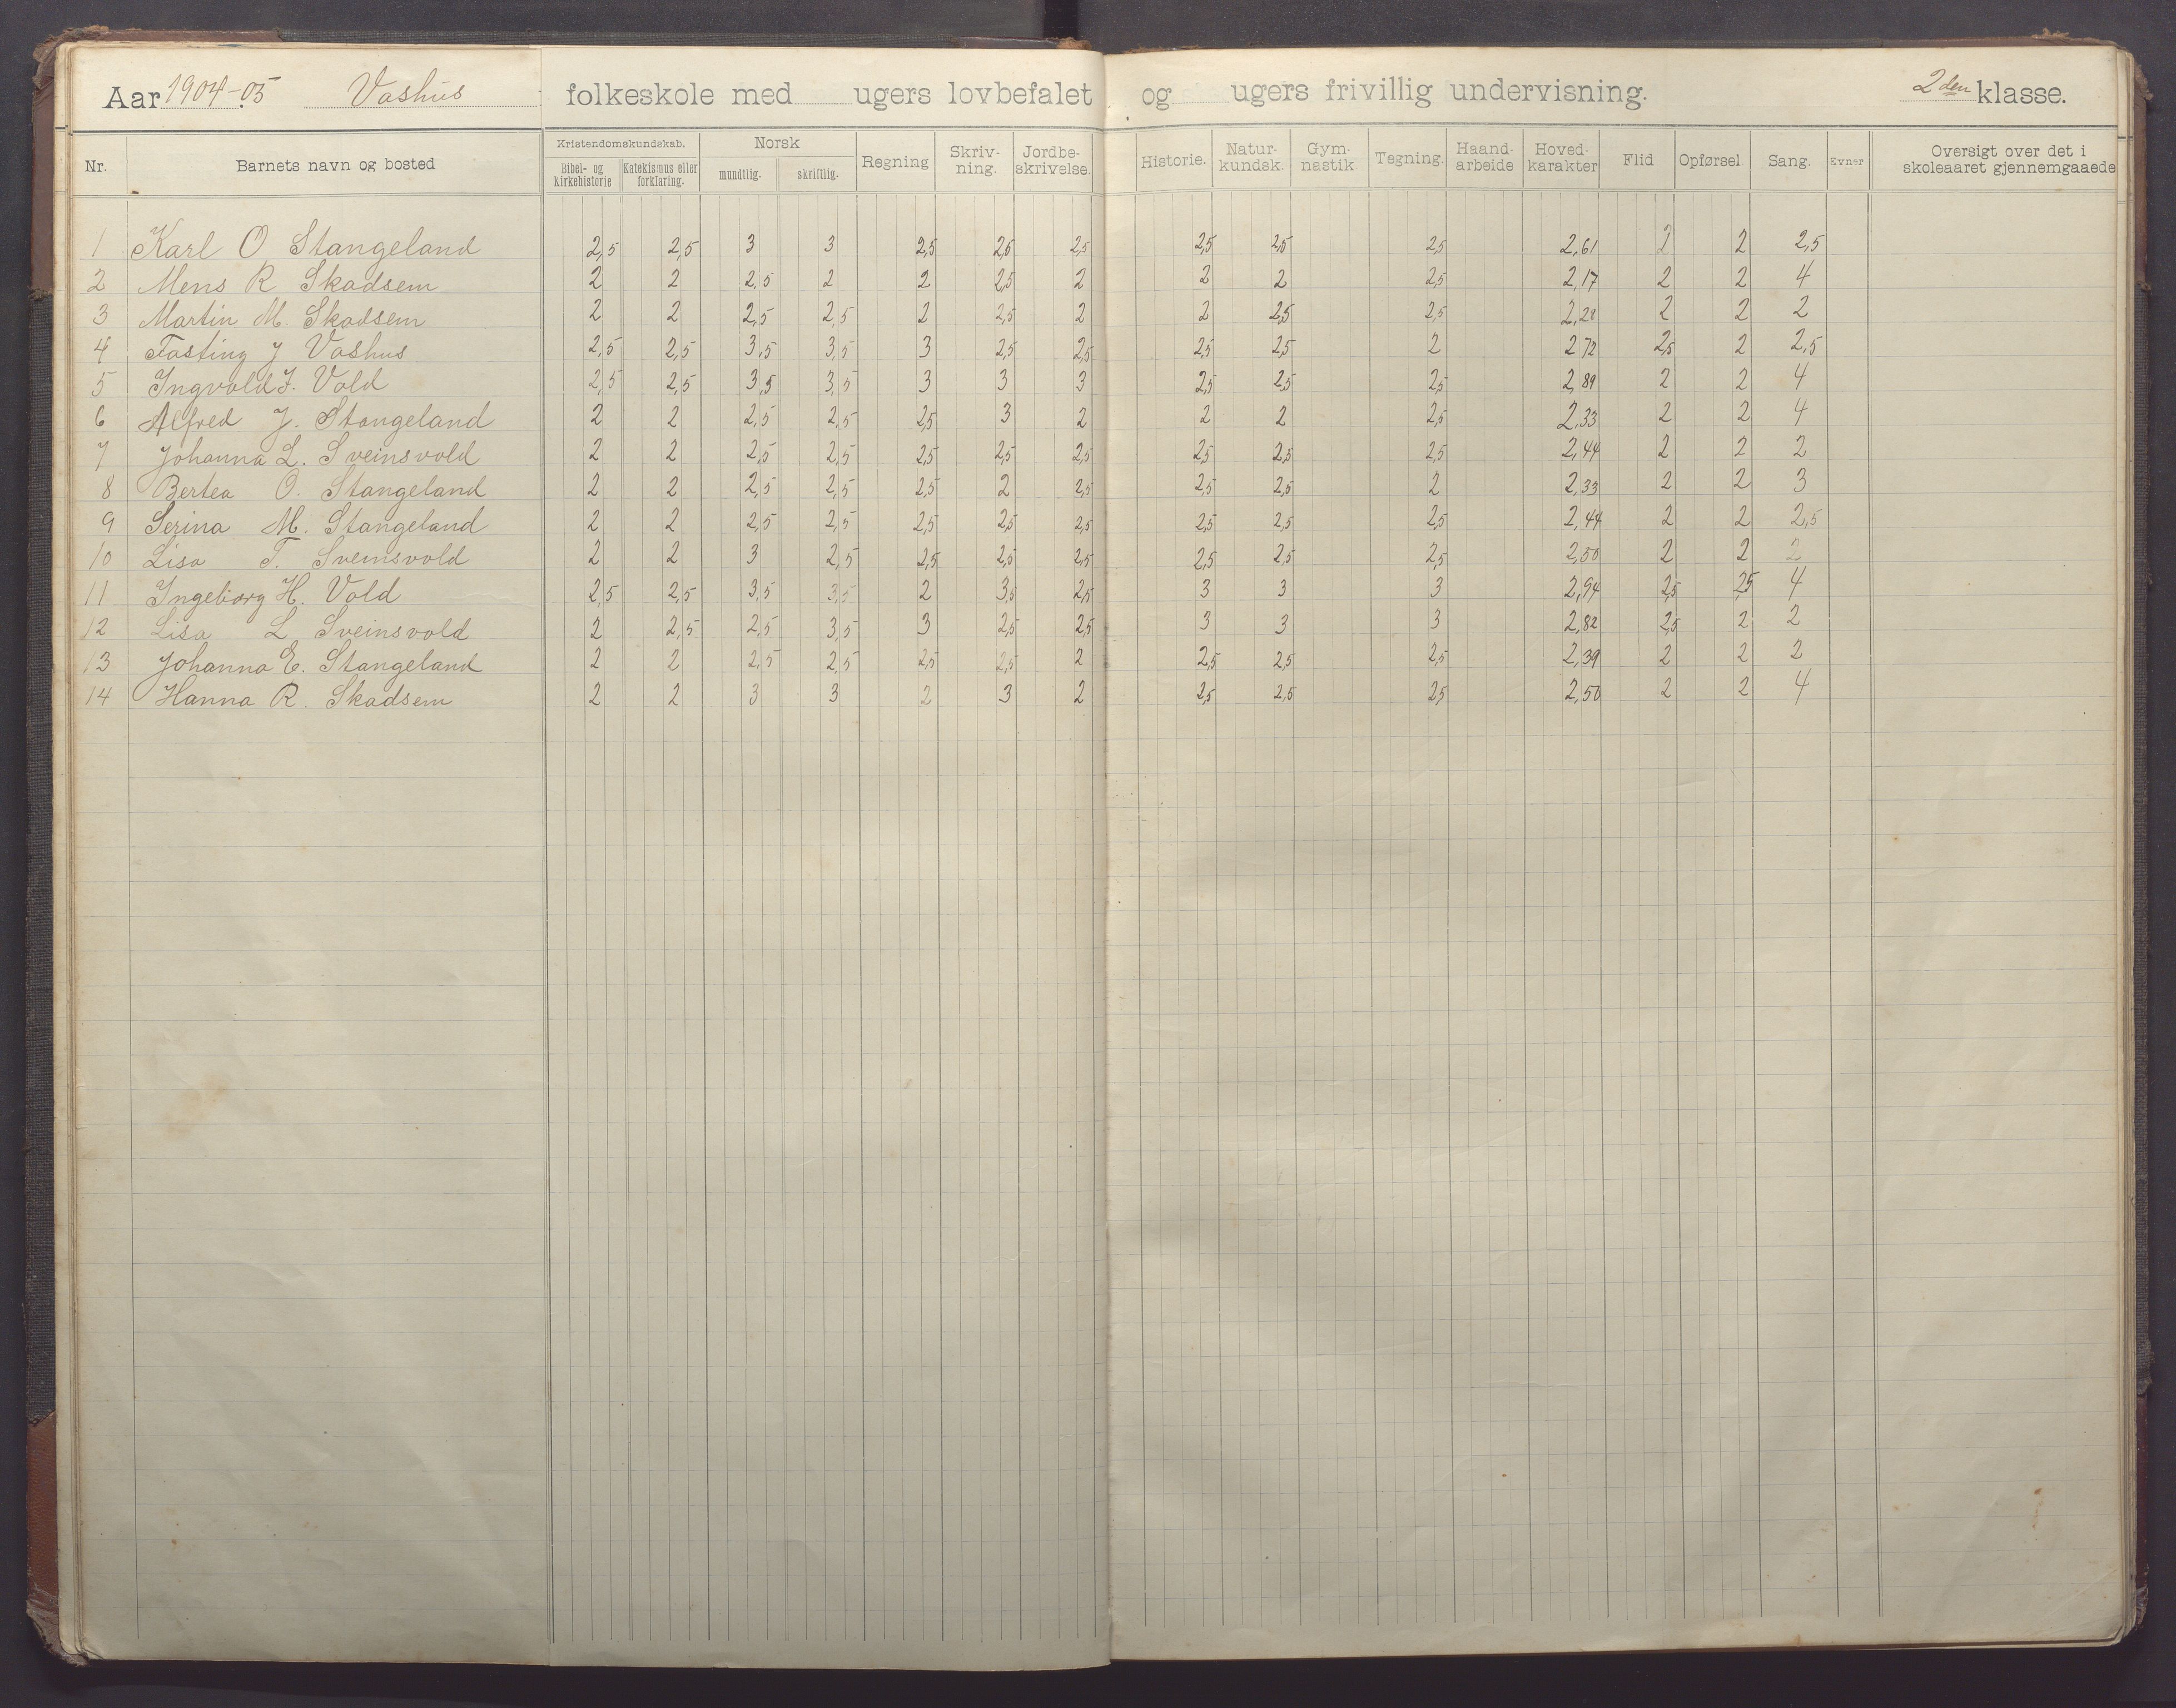 Aar 1904-05 Vashus folkeskole med ugers lovbefalet og ugers frivillig undervisning. 2den klasse.
Nr. Barnets navn og bosted Kristendomskundskab. Bibel- og Kirkehistorie Katekismus eller forklaring. Norsk mundtlig. skriftlig. Regning Skriv-ning. Jordbe-skrivelse. Historie. Natur-kundsk. Gym-nastik Tegning. Haand-arbeide Hoved-karakter Flid Opførsel Sang. Evner Oversigt over det i skoleaaret gjennemgaaede
1 Karl O. Stangeland 2,5 2,5 3 3 2,5 2,5 2,5 2,5 2,5 2,5 2,61 2 2 2,5
2 Mens R Skadsem 2 2 2,5 2 2 2,5 2 2 2 2,5 2,17 2 2 4
3 Martin M. Skadsem 2 2 2,5 2,5 2 2,5 2 2 2,5 2,5 2,28 2 2 2
4 Fasting J Vashus 2,5 2,5 3,5 3,5 3 2,5 2,5 2,5 2,5 2 2 72 2,5 2 2,5
5 Ingvald J. Vold 2,5 2,5 3,5 3,5 3 3 3 2,5 2,5 2,5 2,89 2 2 4
6 Alfred J. Stangeland 2 2 2,5 2,5 2,5 3 2 2 2 2,5 2,33 2 2 4
7 Johanna L. Sveinsvold 2 2 2,5 2,5 2,5 2,5 2,5 2,5 2,5 2,5 2,44 2 2 2
8 Bertea O. Stangeland 2 2 2,5 2,5 2,5 2 2,5 2,5 2,5 2 2,33 2 2 3
9 Serina M. Stangeland 2 2 2,5 2,5 2,5 2,5 2,5 2,5 2,5 2,5 2,44 2 2 2,5
10 Lisa T. Sveinsvold 2 2 3 2,5 2,5 2,5 2,5 2,5 2,5 2,5 2,50 2 2 2
11 Ingeborg H. Vold 2,5 2,5 3,5 3,5 2 3,5 2,5 3 3 3 2,94 2,5 2,5 4
12 Lisa L Sveinsvold 2 2,5 2,5 3,5 3 2,5 2,5 3 3 3 2,82 2,5 2 2
13 Johanna E. Stangeland 2 2 2,5 2,5 2,5 2,5 2 2,5 2,5 2,5 2,39 2 2 2
14 Hanna R. Skadsem 2 2 3 3 2 3 2 2,5 2,5 2,5 2,50 2 2 4